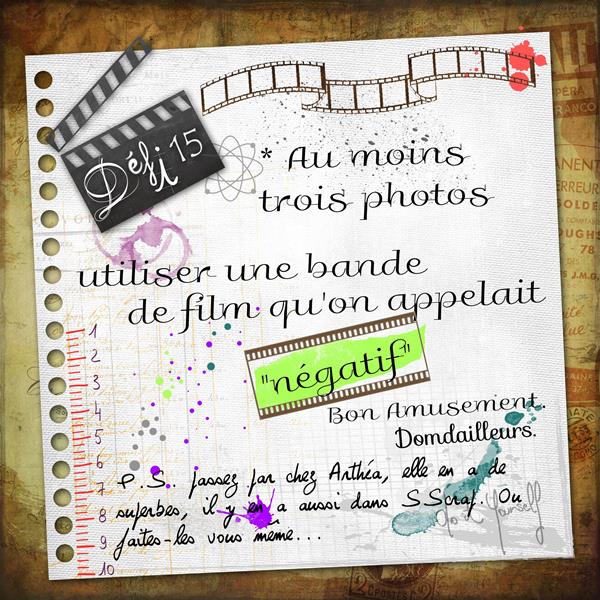 Défi 15
* Au moins
trois photos
utiliser une bande
de film qu'on appelait
"négatif"
Bon Amusement.
Domdailleurs.
P.S. passez par chez Arthéa, elle en a de
superbes, il y en a aussi dans SScraf. Ou
faites-les vous même...
Do it Yourself
1
2
3
4
5
6
7
8
9
10
OPÉRA
FRANCO
ANENT
ERREUR
SOLDE
78